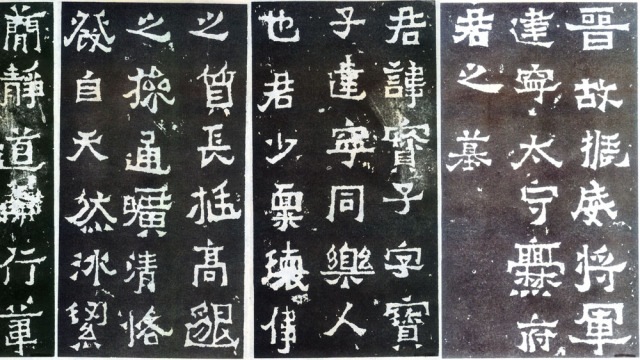 晉故振威將軍
建寧太守爨府
君之墓
君諱寶子字寶
子建寧同樂人
也君少稟瓌偉
之質長挺高邈
之操通曠清恪
發自天然冰絜
簡靜道兼行葦